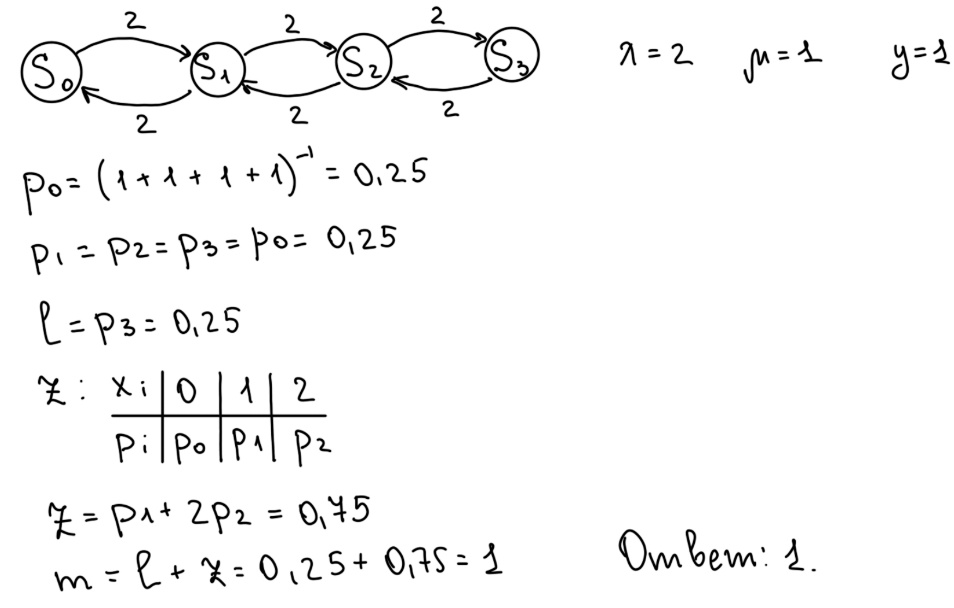 2 2 2
S0 S1 S2 S3 λ = 2 μ = 1 y = 1
2 2 2
p0 = (1 + 1 + 1 + 1)^-1 = 0,25
p1 = p2 = p3 = p0 = 0,25
l = p3 = 0,25
z: xi | 0 | 1 | 2
pi | p0 | p1 | p2
z = p1 + 2p2 = 0,75
m = l + z = 0,25 + 0,75 = 1 Ответ: 1.